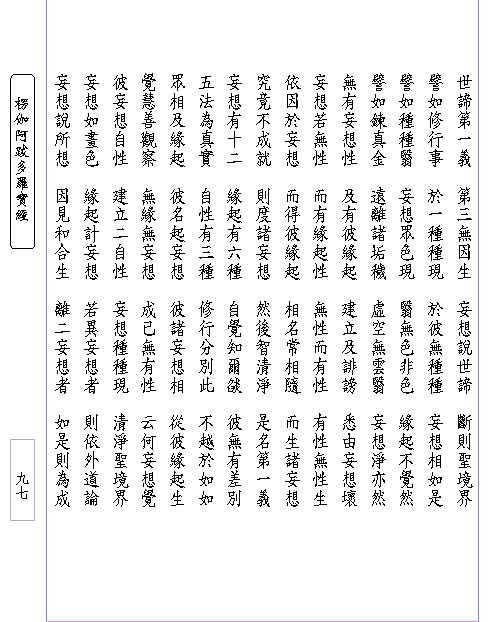 世諦第一義　第三無因生　妄想說世諦　斷則聖境界
譬如修行事　於一種種現　於彼無種種　妄想相如是
譬如種種翳　妄想眾色現　翳無色非色　緣起不覺然
譬如鍊真金　遠離諸垢穢　虛空無雲翳　妄想淨亦然
無有妄想性　及有彼緣起　建立及誹謗　悉由妄想壞
妄想若無性　而有緣起性　無性而有性　有性無性生
依因於妄想　而得彼緣起　相名常相隨　而生諸妄想
究竟不成就　則度諸妄想　然後智清淨　是名第一義
妄想有十二　緣起有六種　自覺知爾燄　彼無有差別
五法為真實　自性有三種　修行分別此　不越於如如
眾相及緣起　彼名起妄想　彼諸妄想相　從彼緣起生
覺慧善觀察　無緣無妄想　成已無有性　云何妄想覺
彼妄想自性　建立二自性　妄想種種現　清淨聖境界
妄想如畫色　緣起計妄想　若異妄想者　則依外道論
妄想說所想　因見和合生　離二妄想者　如是則為成
楞伽阿跋多羅寶經
九七